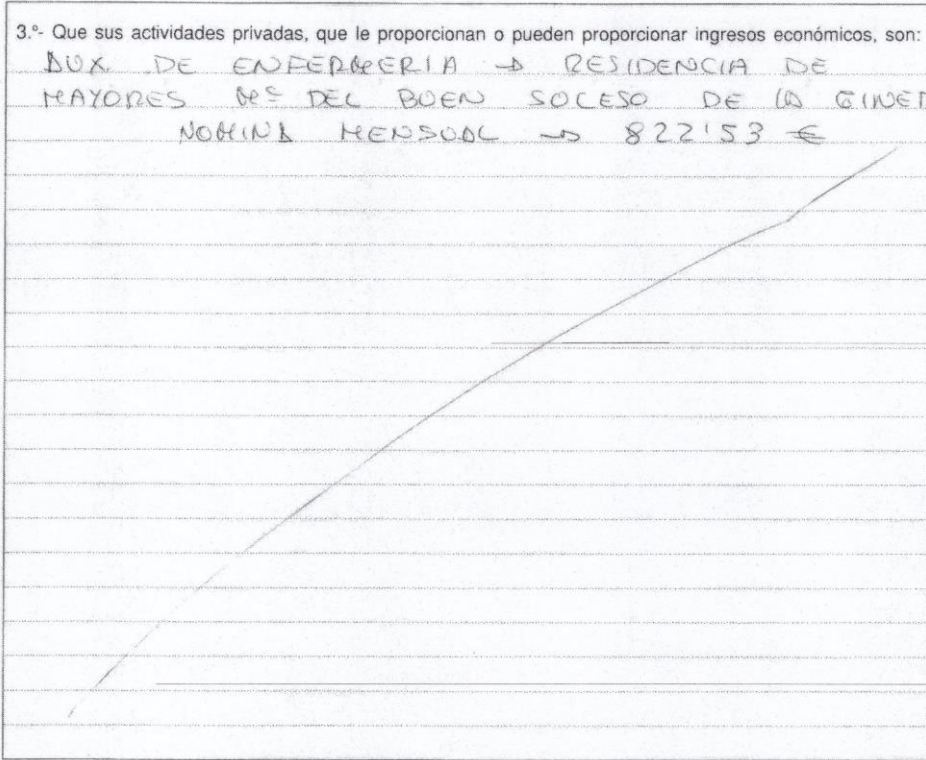 3.º- Que sus actividades privadas, que le proporcionan o pueden proporcionar ingresos económicos, son:
AUX. DE ENFERMERIA → RESIDENCIA DE
MAYORES Mª DEL BUEN SOCESO DE LA GINET
NOMINA MENSUAL → 822'53 €